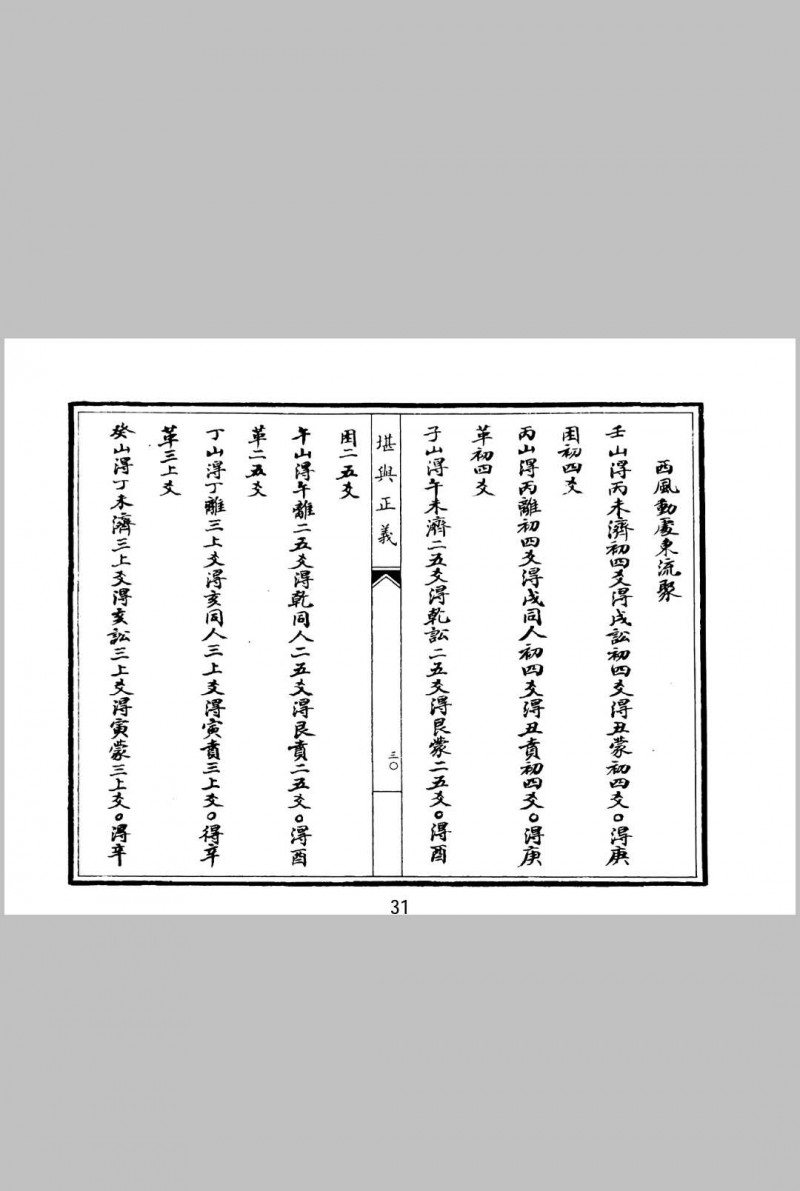 西風動處東流聚
壬山得丙未濟初四爻得戌訟初四爻得丑蒙初四爻○得庚
困初四爻
丙山得丙離初四爻得戌同人初四爻得丑賁初四爻○得庚
革初四爻
子山得午未濟二五爻得乾訟二五爻得艮蒙二五爻○得酉
堪輿正義
三○
困二五爻
午山得午離二五爻得乾同人二五爻得艮賁二五爻○得酉
革二五爻
丁山得丁離三上爻得亥同人三上爻得寅賁三上爻○得辛
革三上爻
癸山得丁未濟三上爻得亥訟三上爻得寅蒙三上爻○得辛
31